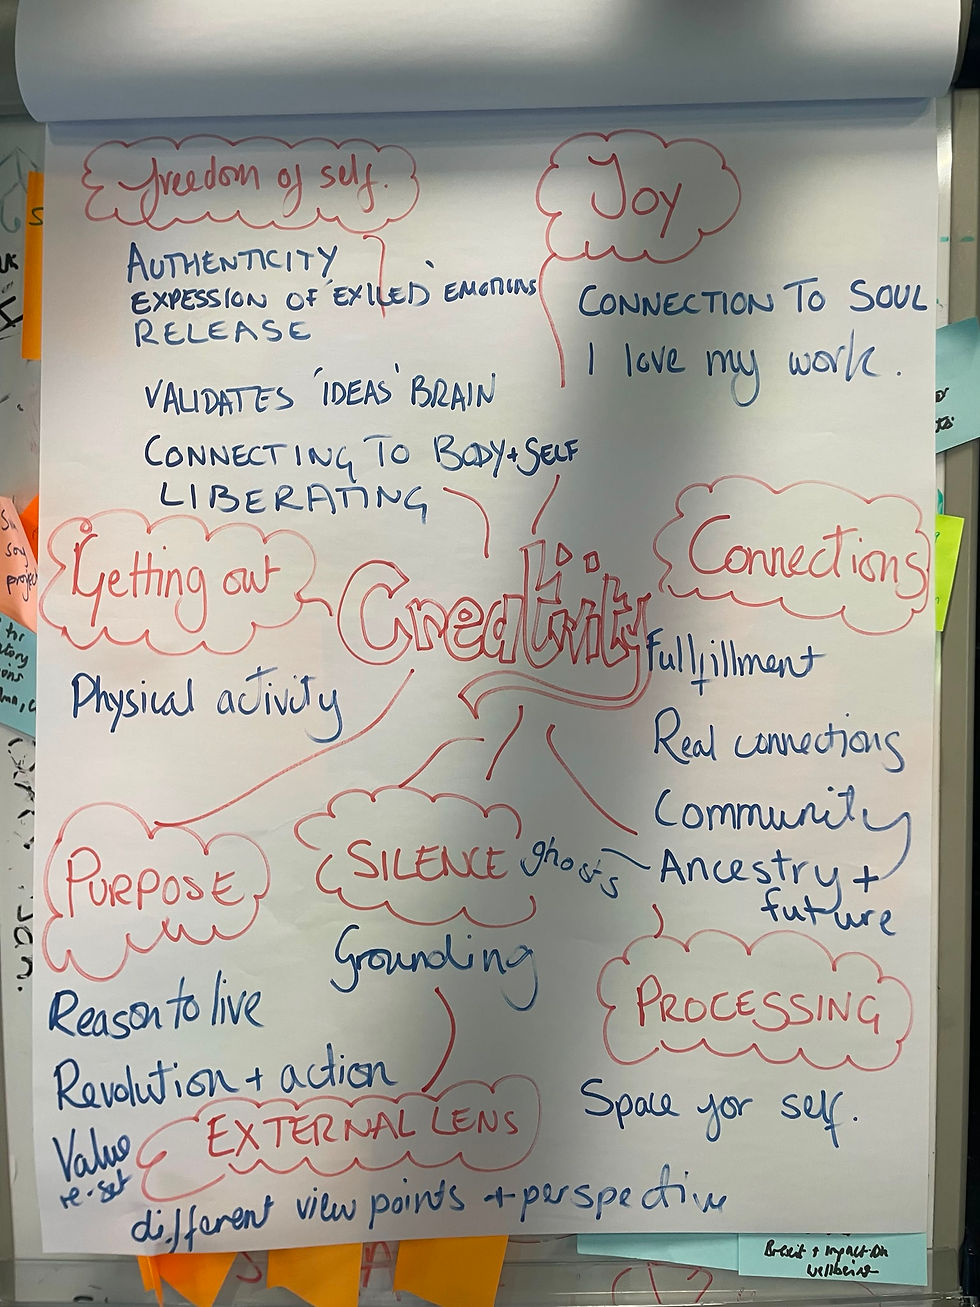 freedom of self.
AUTHENTICITY
EXPESSION OF 'EXILED' EMOTIONS
RELEASE
VALIDATES 'IDEAS' BRAIN
CONNECTING TO BODY + SELF
LIBERATING
Joy
CONNECTION TO SOUL
I love my work.
Getting out
Physical activity
Creativity
Connections
Fullfillment
Real connections
Community
ghosts
Ancestry +
future
PURPOSE
Reason to live
Revolution + action
Value
re-set
SILENCE
Grounding
PROCESSING
Space for self.
EXTERNAL LENS
different view points + perspective
Brexit + impact on
wellbeing